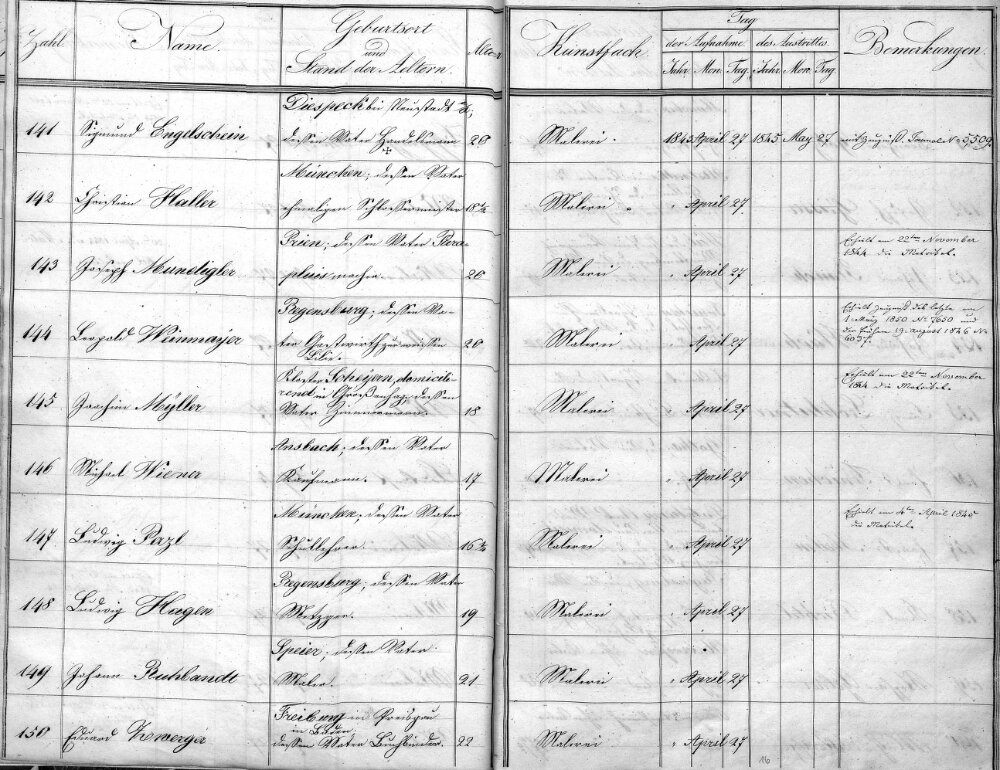 Zahl Name. Geburtsort und Stand der Aeltern. Alter Kunstfach. Tag Bemerkungen.
der Aufnahme des Austrittes
Jahr Mon. Tag Jahr Mon. Tag
141 Sigmund Engelschein Diespeck bei Neustadt a/d;
dessen Vater Handelsmann 28 Malerei. 1843 April 27 1845 May 27
142 Christian Haller München; dessen Vater
ehemaliger Schlossermeister 18 Malerei " " April 27.
143 Joseph Mundigler Prien; dessen Vater
macher. 26 Malerei " April 27 Erhielt am 22ten November
1844 die Matrikel.
144 Leopold Winmayer Regensburg; dessen Va-
ter Gastwirth zur weissen
Lilie. 20 Malerei " April 27 Erhielt Zeugniß
1850 No 7650 und
19. August 1846 No
6037.
145 Joachim Myller Kloster Scheyern, domicili-
rend in dessen
Vater Zimmermann. 18 Malerei " April 27 Erhielt am 22ten November
1844 die Matrikel.
146 Michael Wiener Ansbach; dessen Vater
Kaufmann. 17 Malerei " April 27
147 Ludwig Pazl München; dessen Vater
Schullehrer. 16 Malerei " April 27 Erhielt am 4ten April 1845
die Matrikel.
148 Ludwig Hagen Regensburg; dessen Vater
Metzger. 19 Malerei " April 27
149 Johann Ruhlandt Speier; dessen Vater
Maler. 21 Malerei " April 27
150 Eduard Freiburg im Breisgau
in Baden
dessen Vater Buchbinder. 22 Malerei " April 27
16